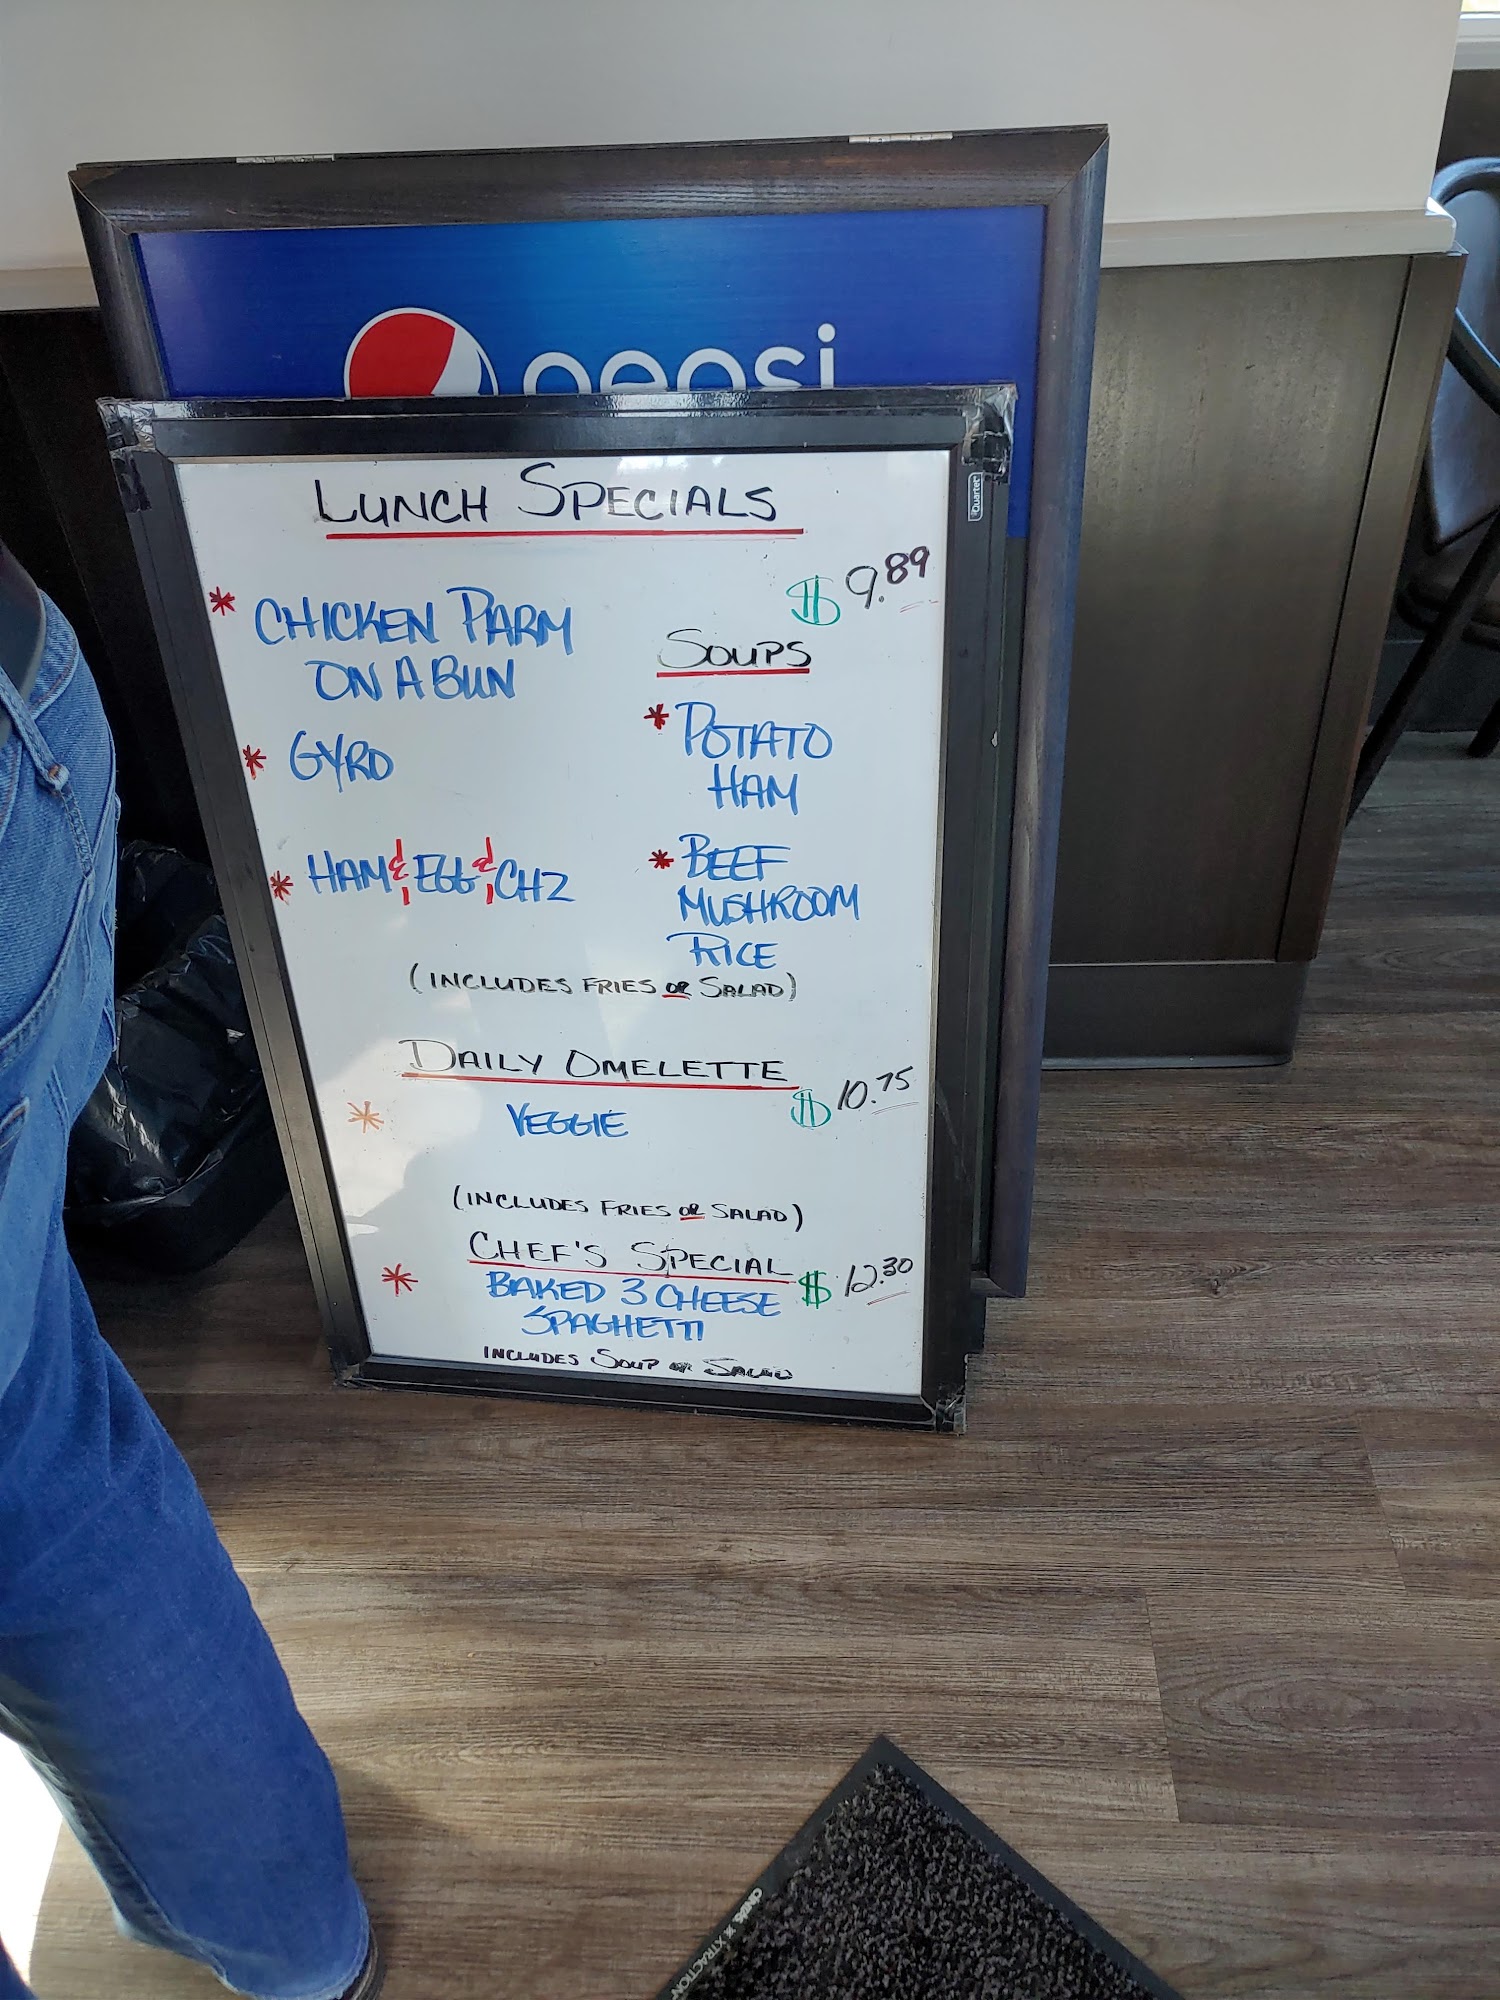 pepsi
Quartet
LUNCH SPECIALS
$ 9.89
* CHICKEN PARM
ON A BUN
* GYRO
* HAM & EGG & CHZ
SOUPS
* POTATO
HAM
* BEEF
MUSHROOM
RICE
(INCLUDES FRIES OR SALAD)
DAILY OMELETTE
$ 10.75
* VEGGIE
(INCLUDES FRIES OR SALAD)
CHEF'S SPECIAL
$ 12.30
* BAKED 3 CHEESE
SPAGHETTI
INCLUDES SOUP OR SALAD
CINTAS XTRACTION